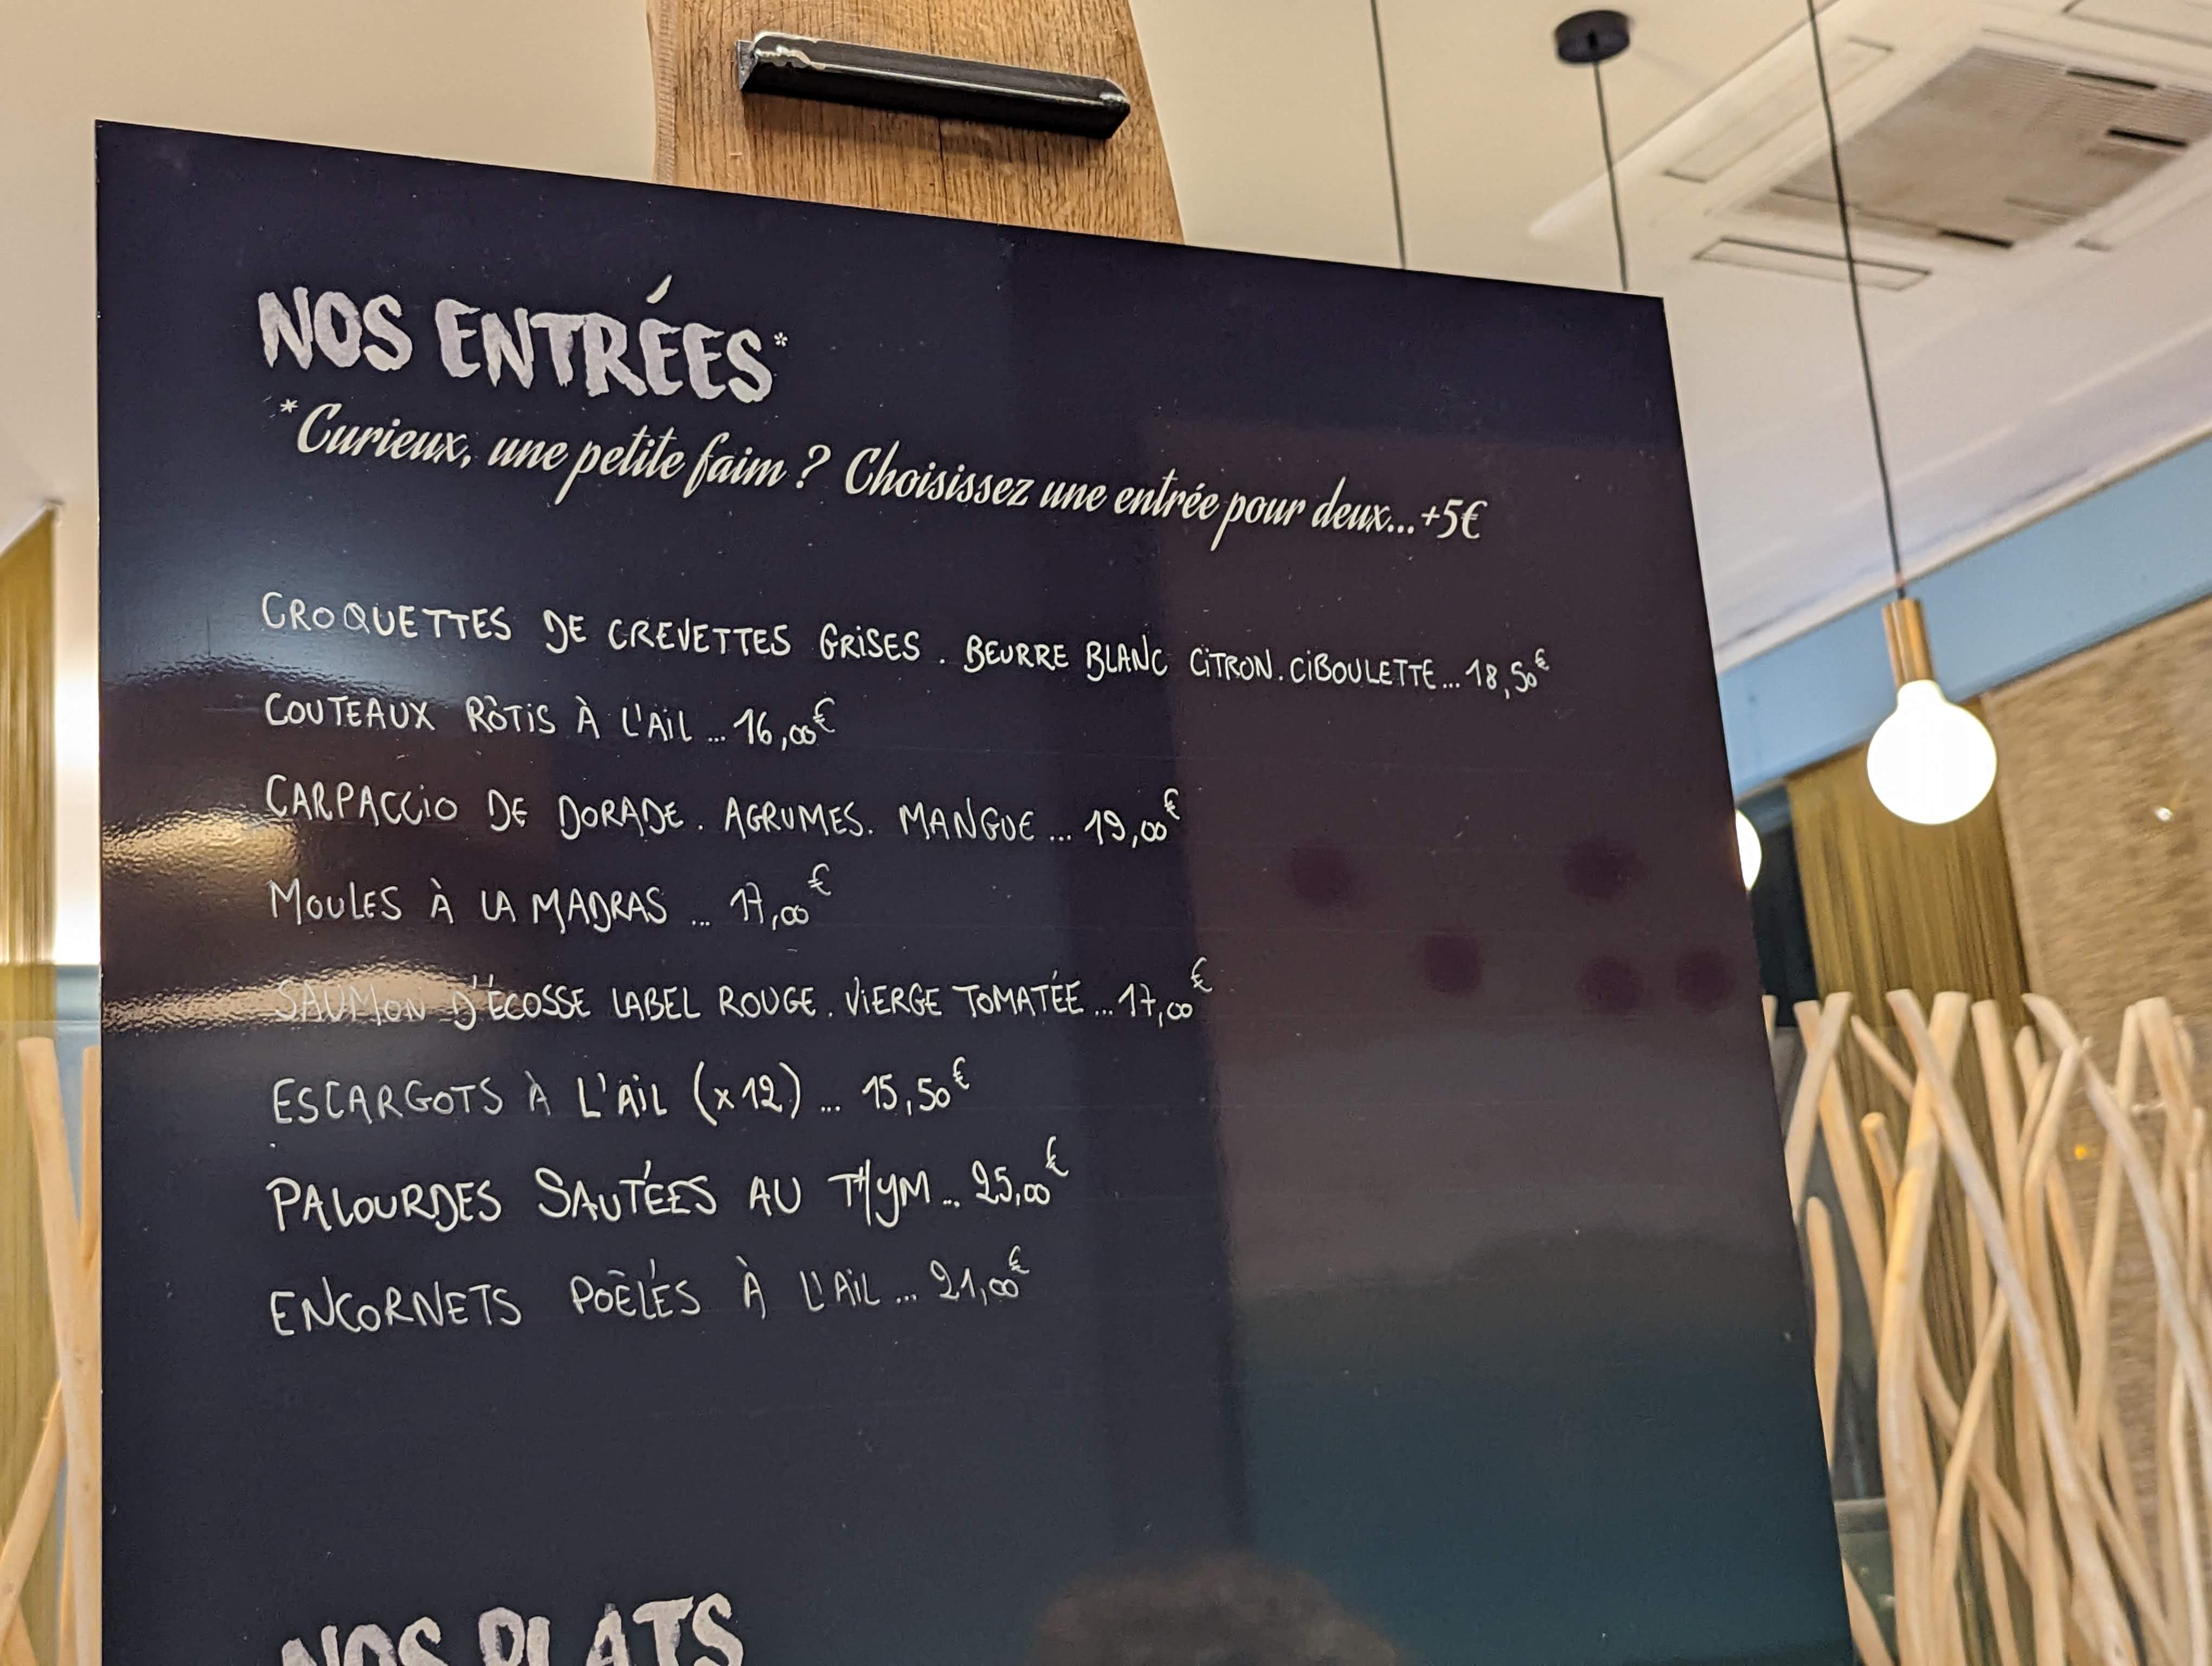 NOS ENTRÉES*
*Curieux, une petite faim ? Choisissez une entrée pour deux...+5€
CROQUETTES DE CREVETTES GRISES . BEURRE BLANC CITRON. CIBOULETTE... 18,50€
COUTEAUX RÔTIS À L'AIL ... 16,00€
CARPACCIO DE DORADE . AGRUMES. MANGUE ... 19,00€
MOULES À LA MADRAS ... 17,00€
SAUMON D'ÉCOSSE LABEL ROUGE . VIERGE TOMATÉE ... 17,00€
ESCARGOTS À L'AIL (x12) ... 15,50€
PALOURDES SAUTÉES AU THYM ... 25,00€
ENCORNETS POÊLÉS À L'AIL ... 21,00€
NOS PLATS